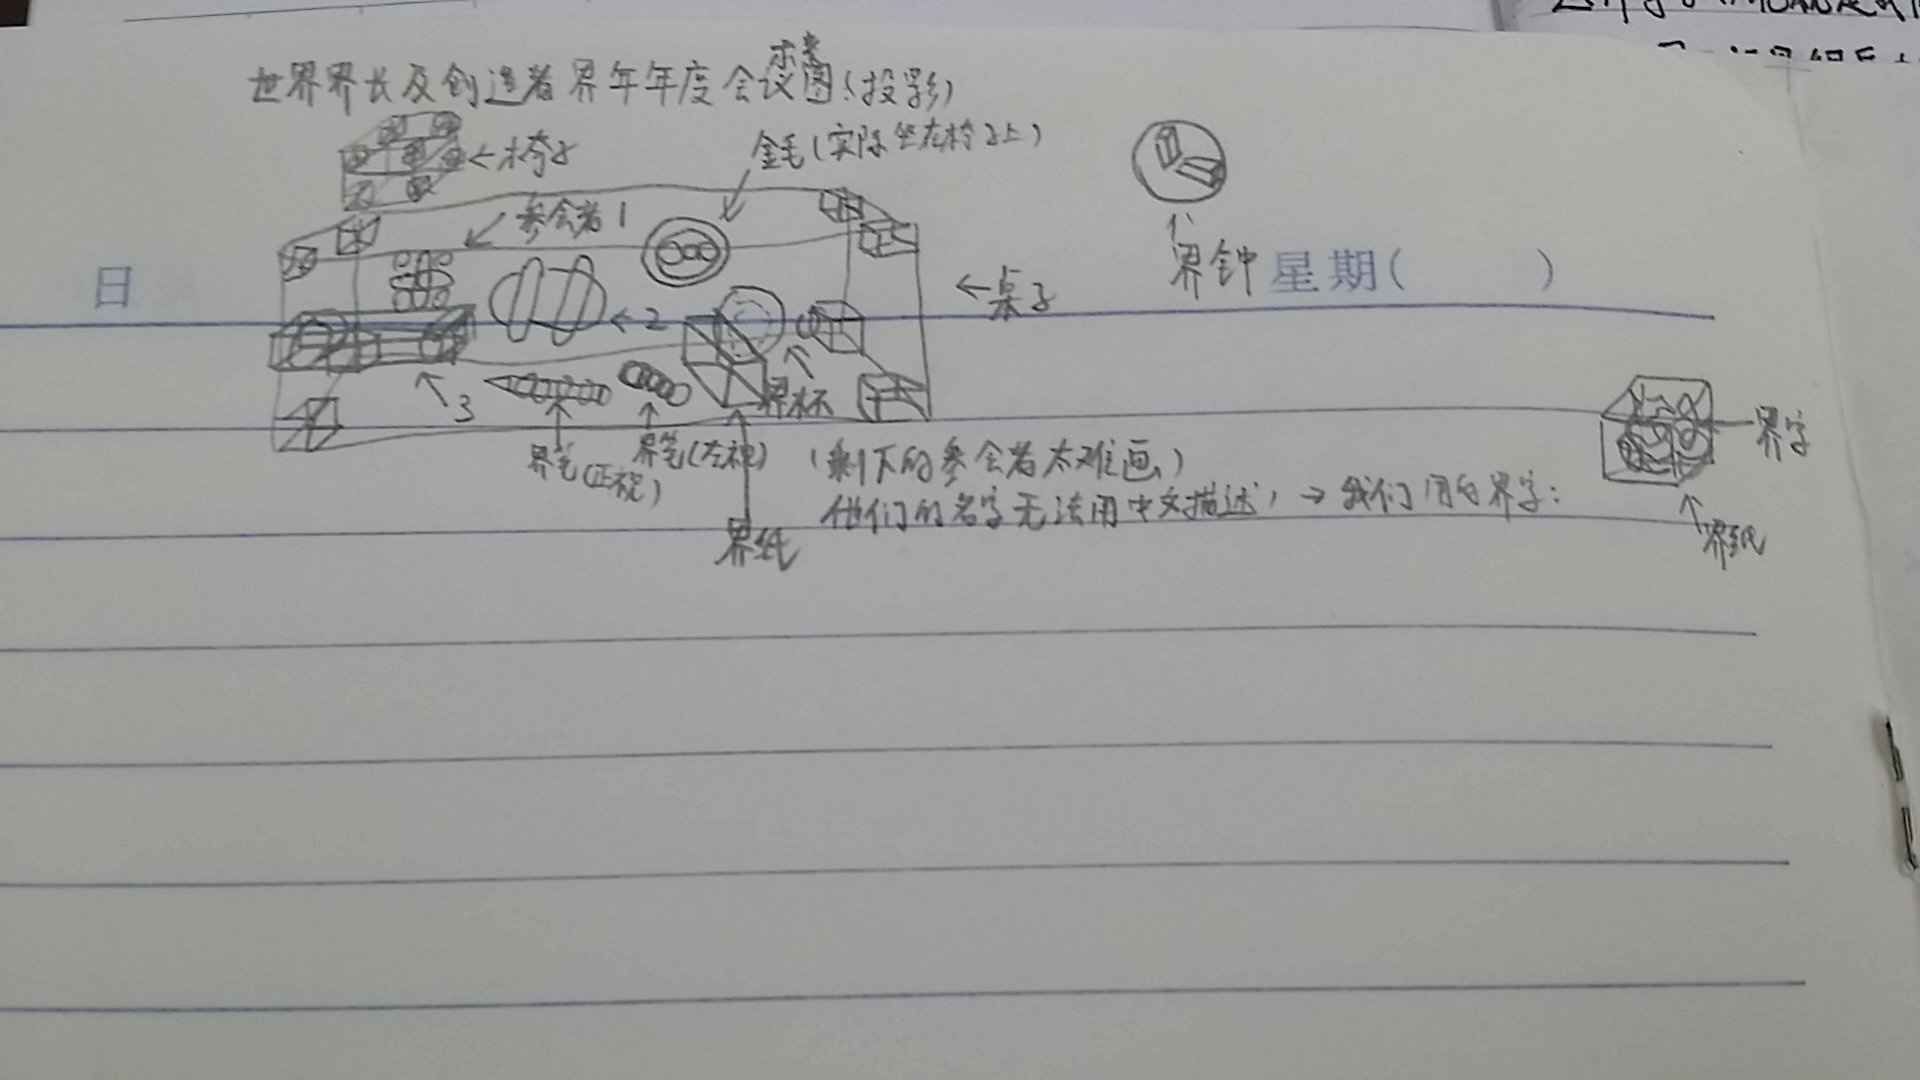 世界界长及创造者界年年度会议图(投影)
←椅子
金毛(实际坐在椅子上)
参会者1
界钟
日
星期( )
←桌子
←2
3
界杯
界笔(正视)
界笔(左视)
界纸
(剩下的参会者太难画)
他们的名字无法用中文描述,→我们用的界字:
界字
界纸